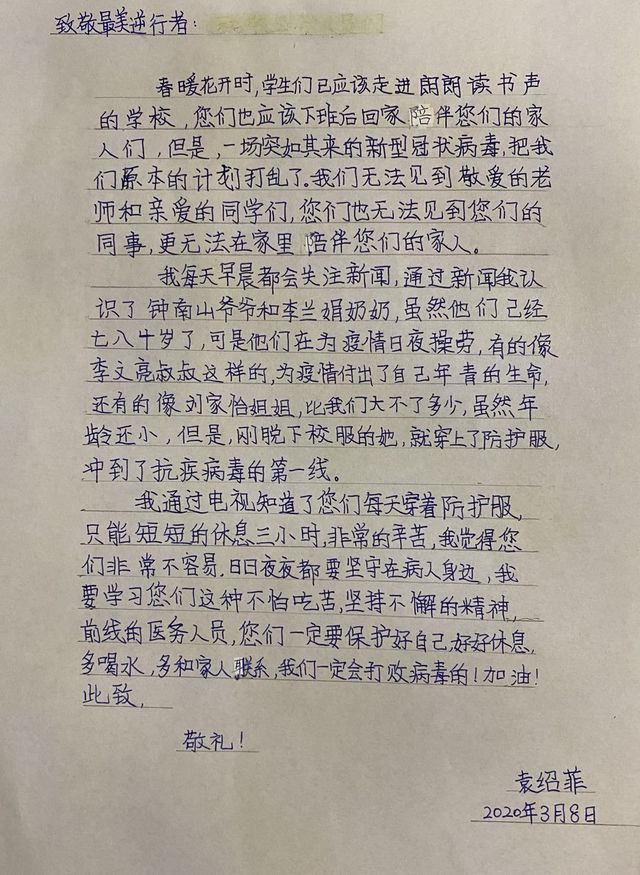 致敬最美逆行者：
春暖花开时,学生们已应该走进朗朗读书声
的学校,您们也应该下班后回家陪伴您们的家
人们,但是,一场突如其来的新型冠状病毒,把我
们原本的计划打乱了。我们无法见到敬爱的老
师和亲爱的同学们,您们也无法见到您们的
同事,更无法在家里陪伴您们的家人。
我每天早晨都会关注新闻,通过新闻我认
识了钟南山爷爷和李兰娟奶奶,虽然他们己经
七八十岁了,可是他们在为疫情日夜操劳,有的像
李文亮叔叔这样的,为疫情付出了自己年青的生命,
还有的像刘家怡姐姐,比我们大不了多少,虽然年
龄还小,但是,刚脱下校服的她,就穿上了防护服,
冲到了抗疾病毒的第一线。
我通过电视知道了您们每天穿着防护服,
只能短短的休息三小时,非常的辛苦,我觉得您
们非常不容易.日日夜夜都要坚守在病人身边,我
要学习您们这种不怕吃苦,坚持不懈的精神,
前线的医务人员,您们一定要保护好自己,好好休息,
多喝水,多和家人联系,我们一定会打败病毒的!加油!
此致,
敬礼!
袁绍菲
2020年3月8日